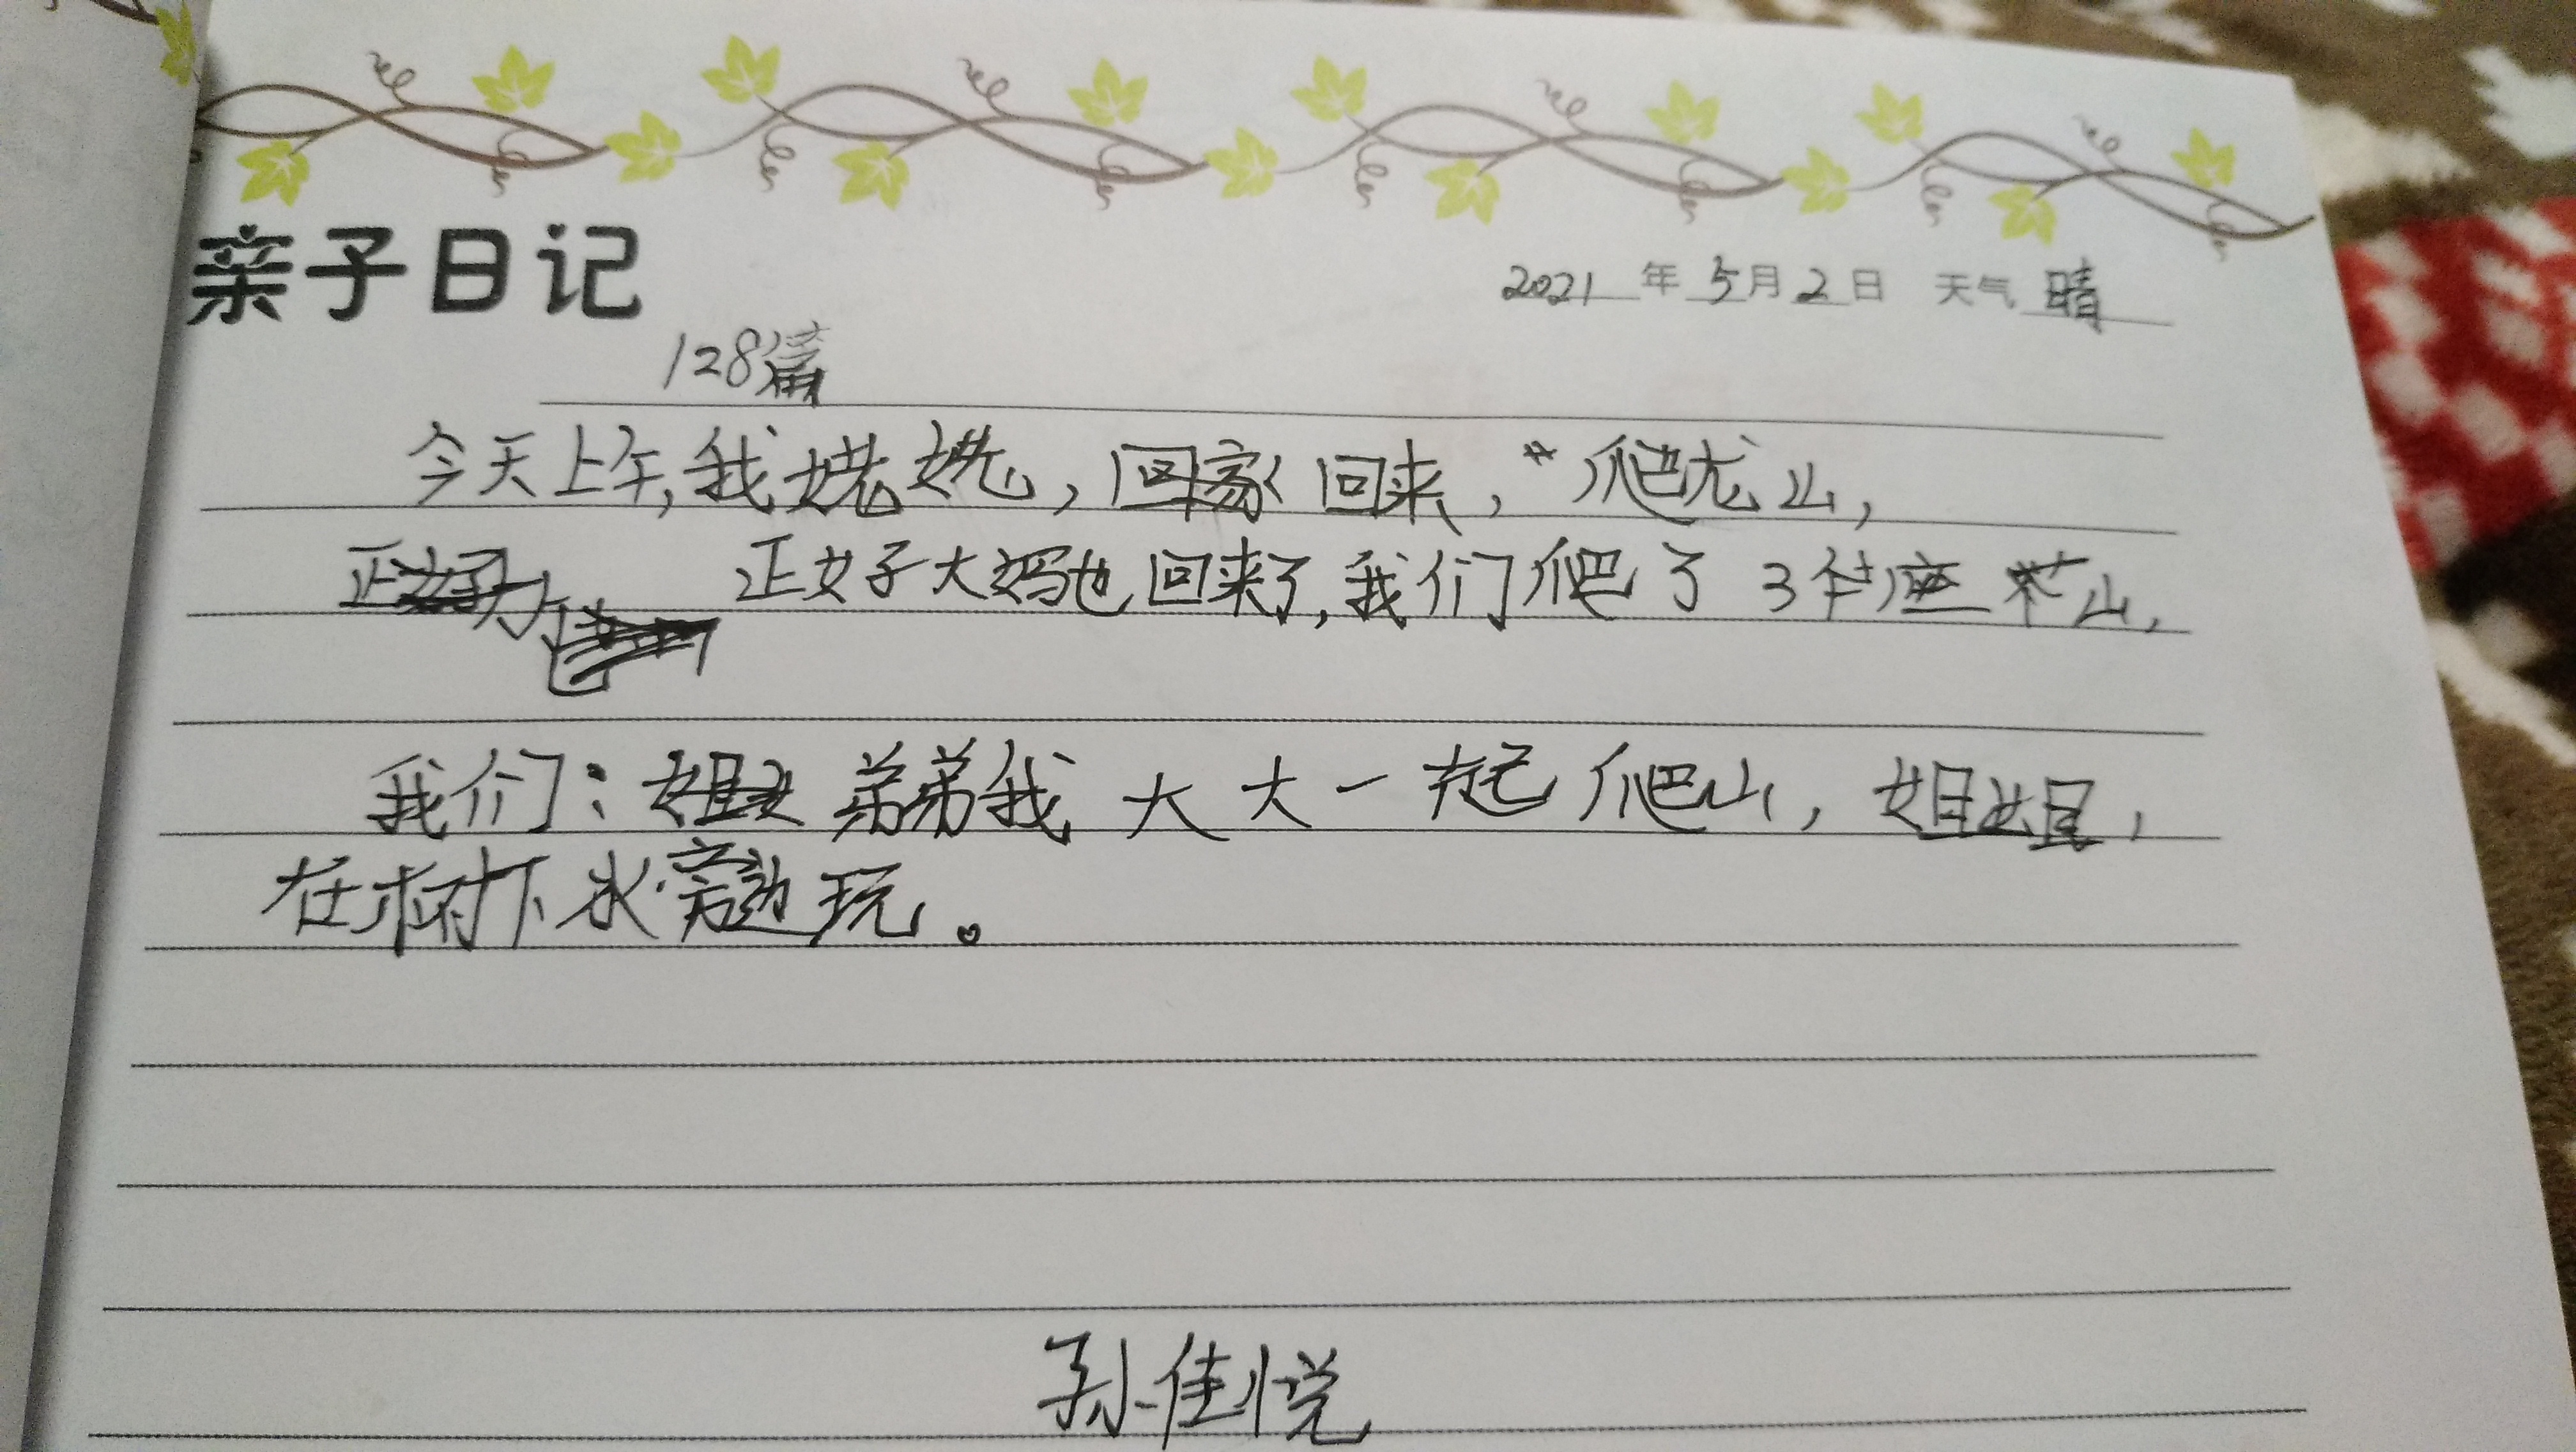 亲子日记
2021年5月2日 天气晴
128篇
今天上午,我姥姥,回家回来,爬龙山,
正好大妈也回来了,我们爬了3座山,
我们:弟弟我大大一起爬山,姐姐,
在树下水旁边玩。
孙佳悦